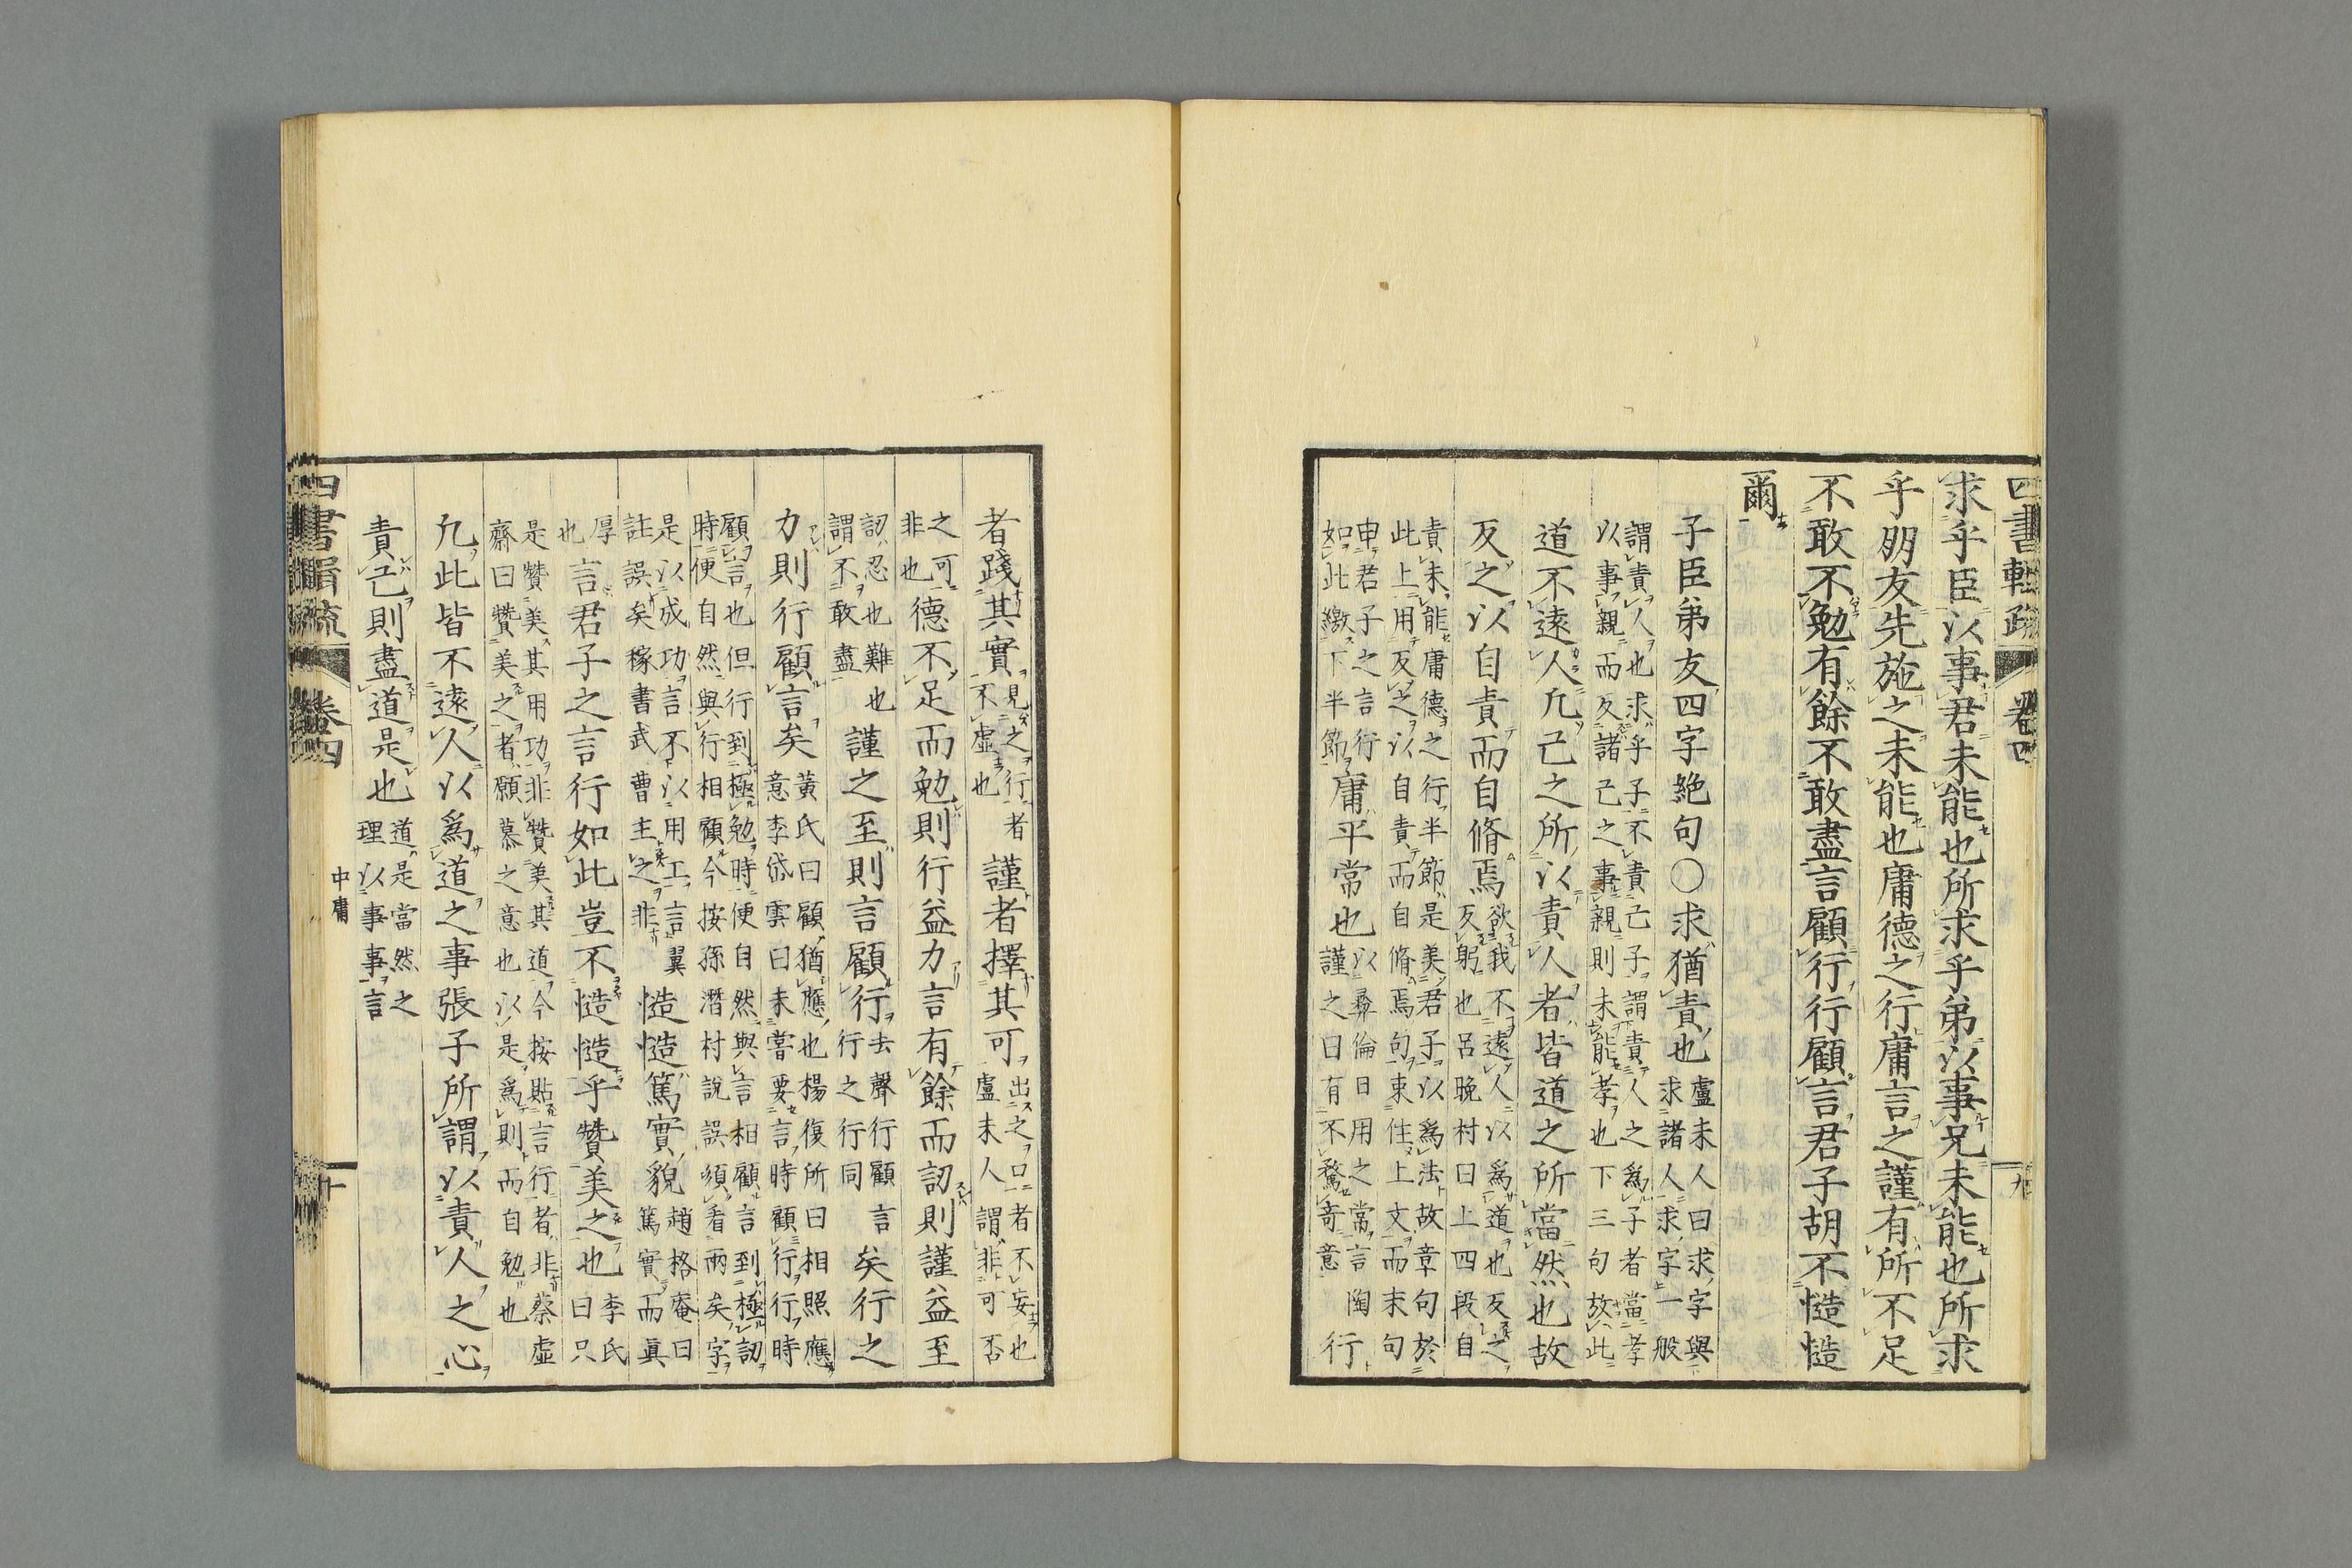 求乎臣以事君未能也所求乎弟以事兄未能也所求
乎朋友先施之未能也庸德之行庸言之謹有所不足
不敢不勉有餘不敢盡言顧行行顧言君子胡不慥慥
爾
子臣弟友四字絶句○求猶責也
盧未人曰求字與
求諸人求字一般
謂責人也求乎子不責己子謂責人之爲子者當孝
以事親而反諸己之事親則未能孝也下三句放此
道不遠人凡己之所以責人者皆道之所當然也故
反之以自責而自脩焉
欲我不遠人以爲道也反之
反躬也呂晩村曰上四段自
責未能庸德之行半節是美君子以爲法故章句於
此上用反之以自責而自脩焉句束住上文而末句
申君子之言行
如此繳下半節
庸平常也
以彝倫日用之常言陶
謹之曰有不鶩奇意
行
者踐其實
見之行者
不虚也
謹者擇其可
出之口者不妄也
盧未人謂非可否
之可
非也
德不足而勉則行益力言有餘而訒則謹益至
訒忍也難也
謂不敢盡
謹之至則言顧行
去聲行顧言
行之行同
矣行之
力則行顧言矣
黃氏曰顧猶應也楊復所曰相照應
意李岱雲曰未嘗要言時顧行行時
顧言也但行到極勉時便自然與言相顧言到極訒
時便自然與行相顧今按孫潛村說誤須看兩矣字
是以成功言不以用工言翼
註誤矣稼書武曹主之非
慥慥篤實貌
趙格庵曰
篤實而眞
厚
也
言君子之言行如此豈不慥慥乎贊美之也
李氏
曰只
是贊美其用功非贊美其道今按貼言行者非蔡虛
齋曰贊美之者願慕之意也以是爲則而自勉也
凡此皆不遠人以爲道之事張子所謂以責人之心
責己則盡道是也
道是當然之
理以事事言
四書輯疏
卷四
九
中庸